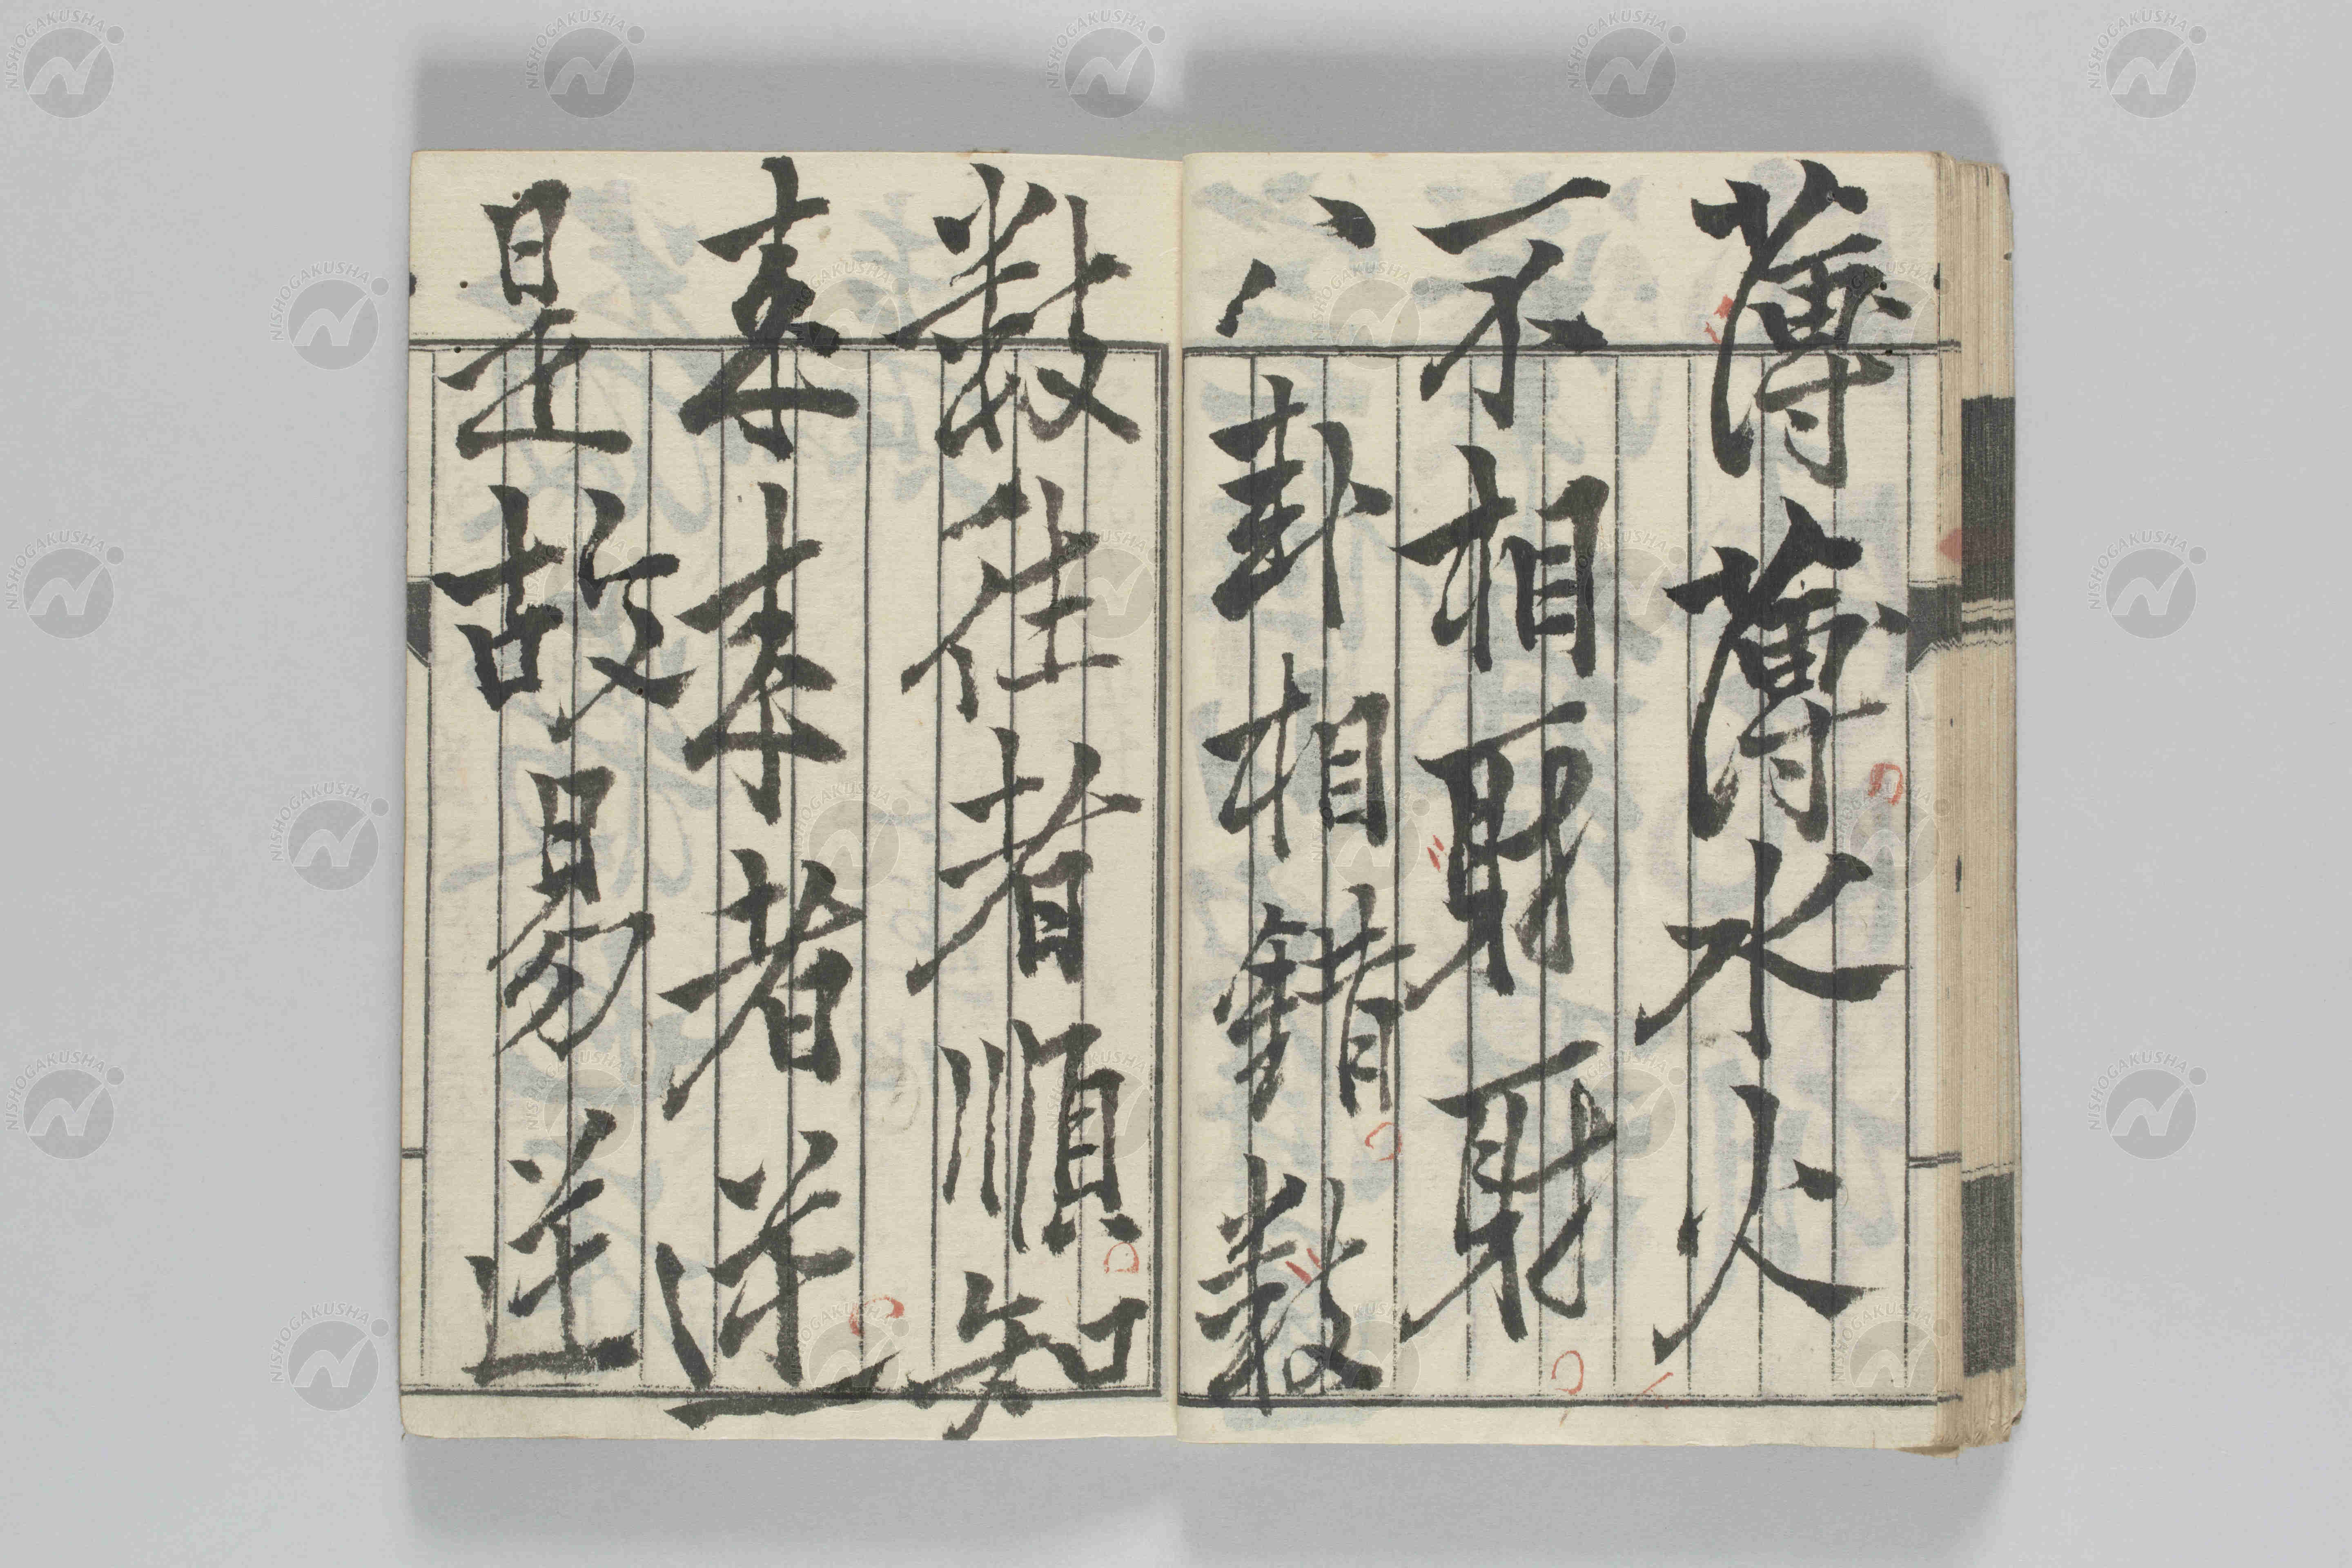 薄薄水火
不相射射
八卦相錯数
数往者順知
来来者逆
是故易逆
NISHOGAKUSHA